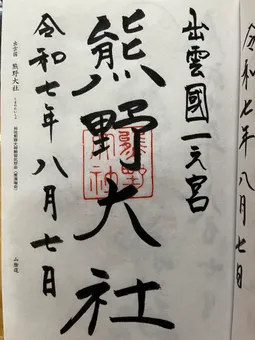 令和七年八月七日
出雲國一之宮
熊野大社
熊野大社
令和七年八月七日
出雲国 熊野大社
山陰道